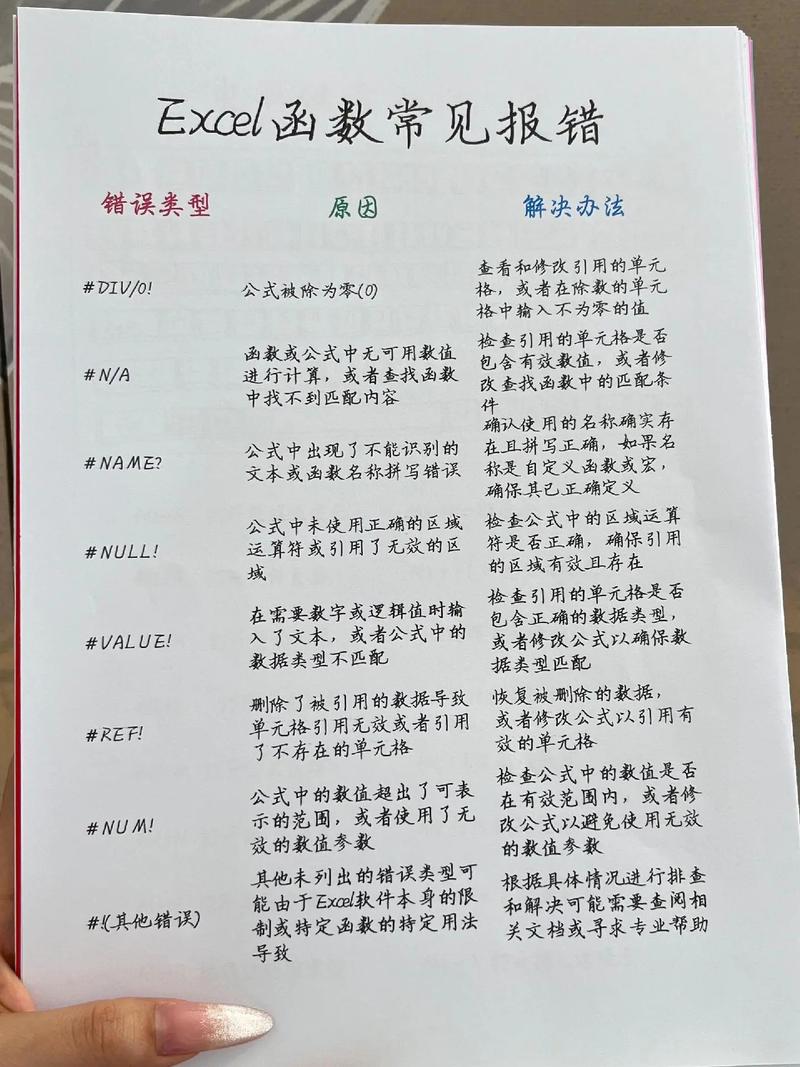 Excel函数常见报错
错误类型
原因
解决办法
#DIV/0!
公式被除为零(0)
查看和修改引用的单元
格，或者在除数的单元
格中输入不为零的值
#N/A
函数或公式中无可用数值
进行计算，或者查找函数
中找不到匹配内容
检查引用的单元格是否
包含有效数值，或者修
改查找函数中的匹配条
件
#NAME?
公式中出现了不能识别的
文本或函数名称拼写错误
确认使用的名称确实存
在且拼写正确，如果名
称是自定义函数或宏，
确保其已正确定义
#NULL!
公式中未使用正确的区域
运算符或引用了无效的区
域
检查公式中的区域运算
符是否正确，确保引用
的区域有效且存在
#VALUE!
在需要数字或逻辑值时输
入了文本，或者公式中的
数据类型不匹配
检查引用的单元格是否
包含正确的数据类型，
或者修改公式以确保数
据类型匹配
#REF!
删除了被引用的数据导致
单元格引用无效或者引用
了不存在的单元格
恢复被删除的数据，
或者修改公式以引用有
效的单元格
#NUM!
公式中的数值超出了可表
示的范围，或者使用了无
效的数值参数
检查公式中的数值是否
在有效范围内，或者修
改公式以避免使用无效
的数值参数
#!(其他错误)
其他未列出的错误类型可
能由于Excel软件本身的限
制或特定函数的特定用法
导致
根据具体情况进行排查
和解决可能需要查阅相
关文档或寻求专业帮助